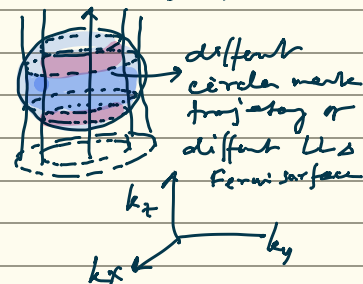 diffent
circles mark
trajetory of
diffent LLs
Fermi surface
kz
ky
kx